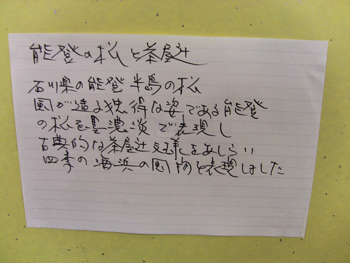 能登の松と茶屋辻
石川県の能登半島の松
風が造る独得な姿である能登
の松を墨濃淡で表現し
古典的な茶屋辻文様をあしらい
四季の海浜の風物を表現しました